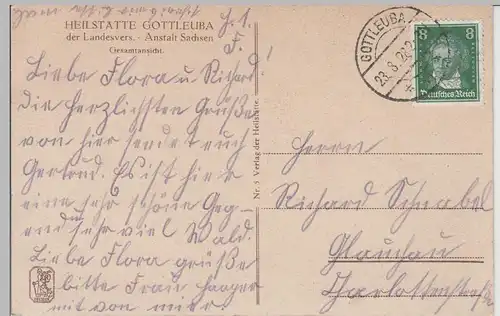 HEILSTÄTTE GOTTLEUBA
der Landesvers. - Anstalt Sachsen
Gesamtansicht.
Liebe Flora u. Richard!
Die herzlichsten Grüße
von hier sendet euch
Gertrud. Es ist hier
eine sehr schöne Geg-
end sehr viel Wald.
Liebe Flora grüße
bitte Frau Haager
mit von mir.
Nr. 5 Verlag der Heilstätte.
GOTTLEUBA
8 8
Deutsches Reich
Herrn
Richard Schnabel
Glauchau
Charlottenstraße